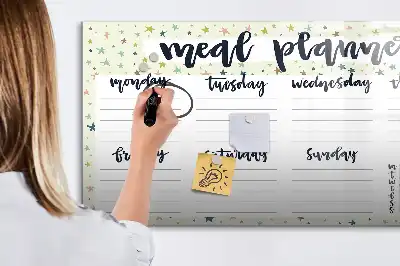 meal planne
monday tuesday wednesday
friday saturday sunday
notes